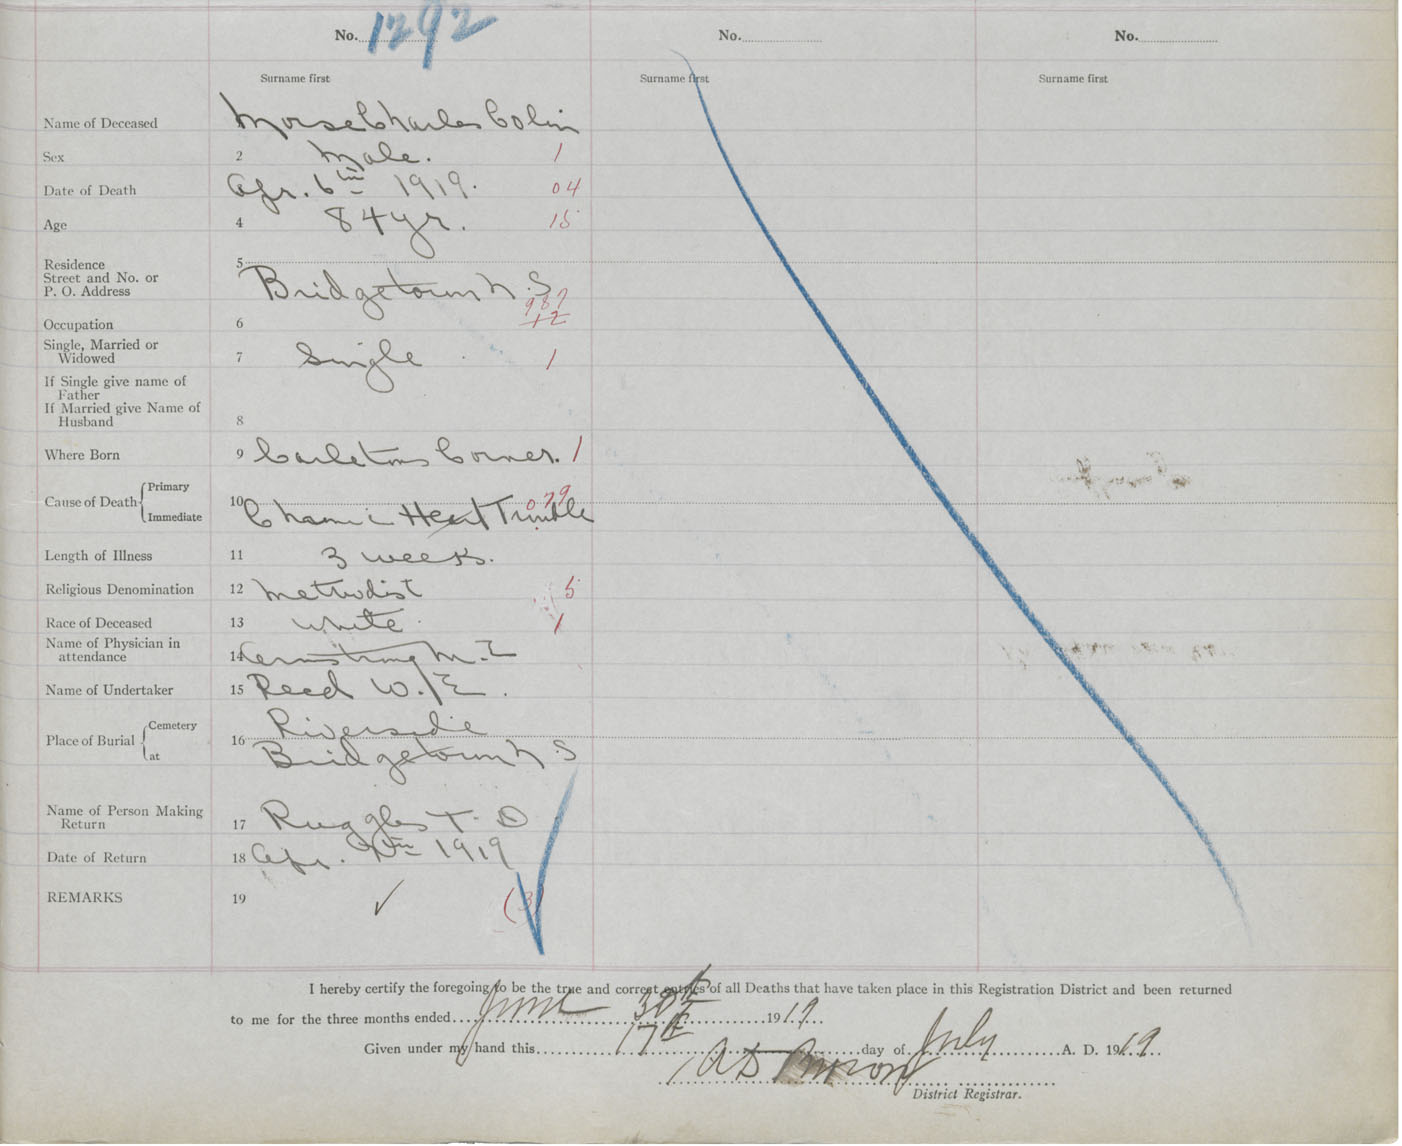 No. 1292 No. No.
Surname first Surname first Surname first
Name of Deceased Morse Charles Colin
Sex 2 Male. 1
Date of Death Apr. 6th 1919. 04
Age 4 84 yr. 15
Residence 5
Street and No. or
P. O. Address Bridgetown N.S
987
12
Occupation 6
Single, Married or
Widowed 7 Single 1
If Single give name of
Father
If Married give Name of
Husband 8
Where Born 9 Carletons Corner. 1
Cause of Death Primary 10 079
Immediate Chronic Heart Trouble
Length of Illness 11 3 weeks.
Religious Denomination 12 Methodist 5
Race of Deceased 13 White 1
Name of Physician in
attendance 14 Armstrong M. E
Name of Undertaker 15 Reed W. E.
Place of Burial Cemetery 16 Riverside
at Bridgetown N.S
Name of Person Making
Return 17 Ruggles T. D
Date of Return 18 Apr. 1919
REMARKS 19 ✓ (3)
I hereby certify the foregoing to be the true and correct entries of all Deaths that have taken place in this Registration District and been returned
to me for the three months ended June 30th 1919
Given under my hand this 17th day of July A. D. 1919
District Registrar.